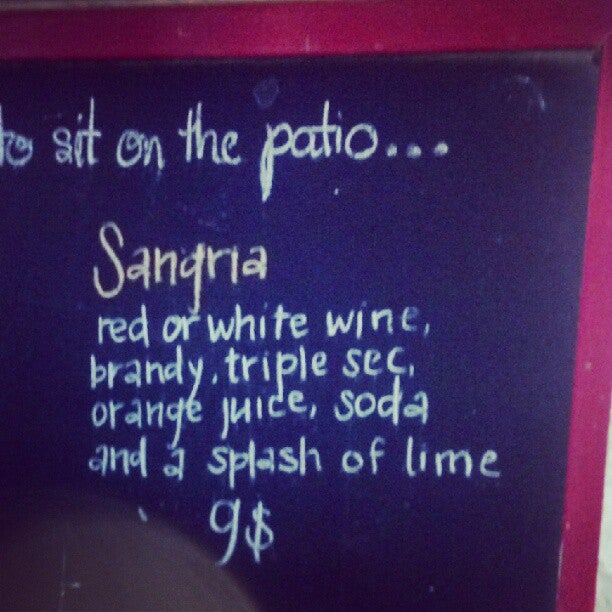 to sit on the patio...
Sangria
red or white wine,
brandy, triple sec,
orange juice, soda
and a splash of lime
9$